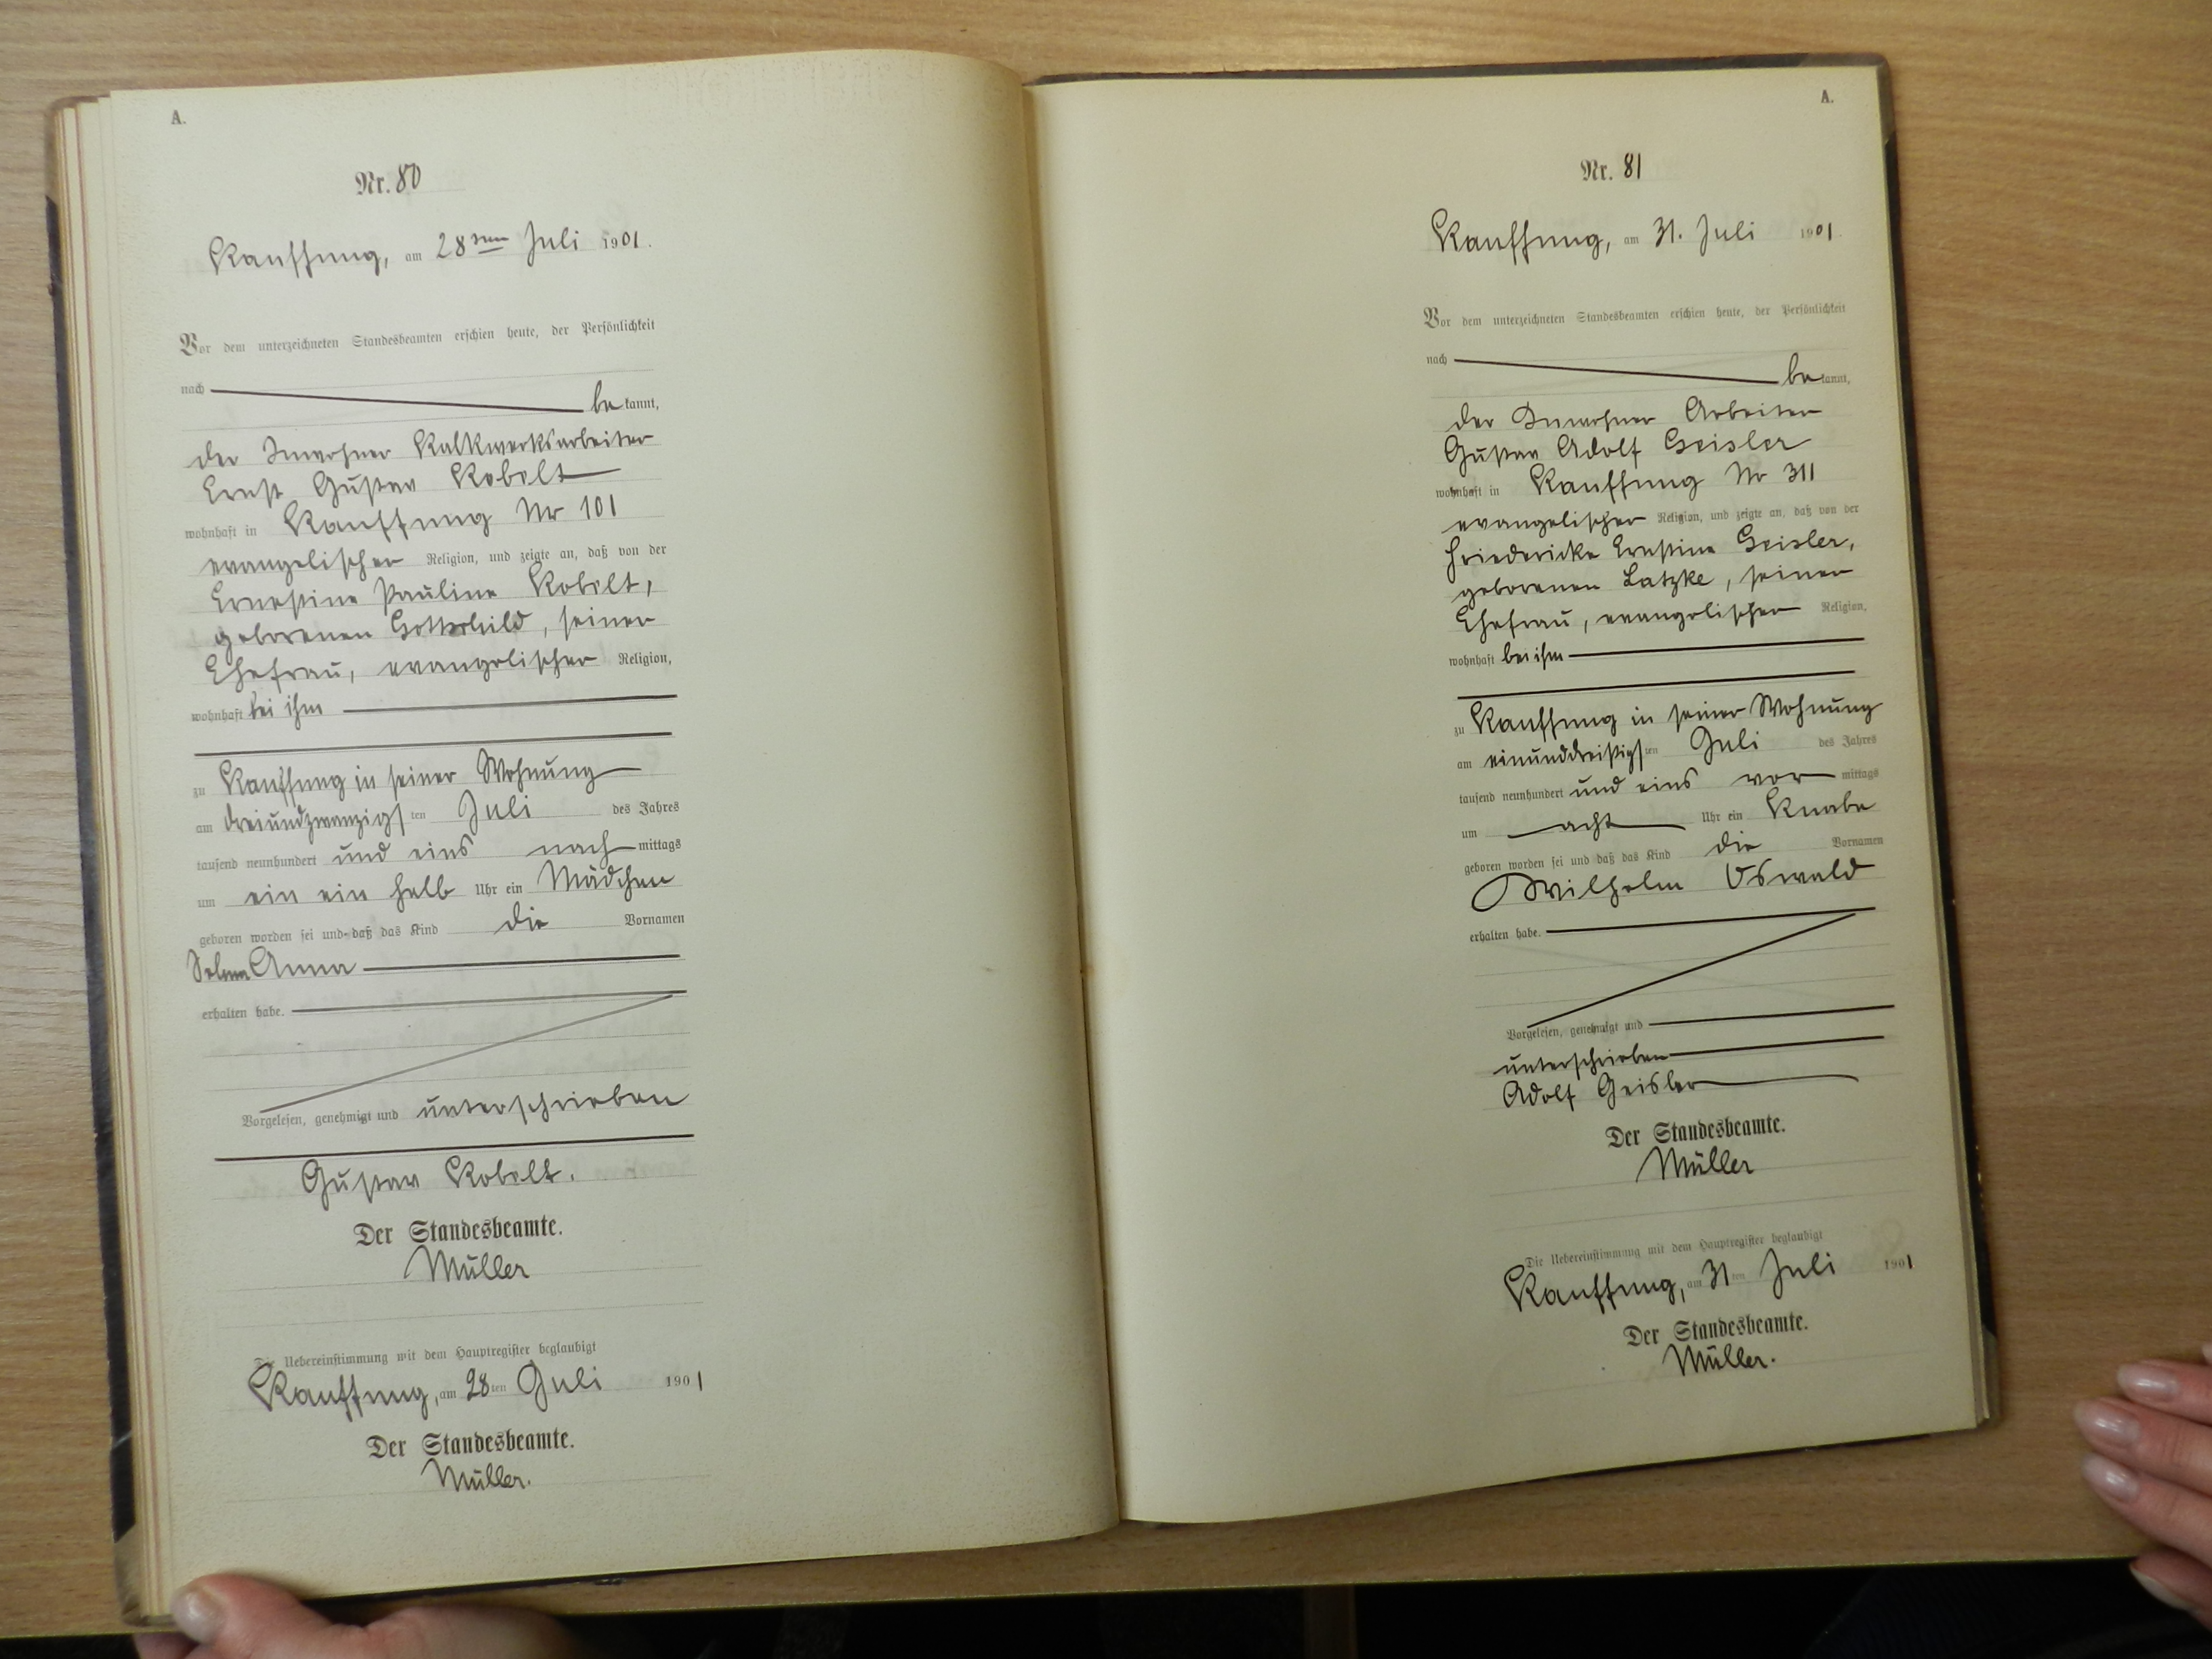 A.
Nr. 80
Kauffung, am 28ten Juli 1901.
Vor dem unterzeichneten Standesbeamten erschien heute, der Persönlichkeit
nach be kannt,
der Inwohner Kalkwerksarbeiter
Ernst Gustav Kobelt
wohnhaft in Kauffung Nr 101
evangelischer Religion, und zeigte an, daß von der
Ernestine Pauline Kobelt,
geborenen Gottschild, seiner
Ehefrau, evangelischer Religion,
wohnhaft bei ihm
zu Kauffung in seiner Wohnung
am dreiundzwanzigs ten Juli des Jahres
tausend neunhundert und eins nach mittags
um ein ein halb Uhr ein Mädchen
geboren worden sei und daß das Kind die Vornamen
Selma Anna
erhalten habe.
Vorgelesen, genehmigt und unterschrieben
Gustav Kobelt.
Der Standesbeamte.
Müller
Die Uebereinstimmung mit dem Hauptregister beglaubigt
Kauffung, am 28ten Juli 1901
Der Standesbeamte.
Müller.
A.
Nr. 81
Kauffung, am 31. Juli 1901.
Vor dem unterzeichneten Standesbeamten erschien heute, der Persönlichkeit
nach be kannt,
der Inwohner Arbeiter
Gustav Adolf Geisler
wohnhaft in Kauffung Nr 311
evangelischer Religion, und zeigte an, daß von der
Friedericke Ernstine Geisler,
geborenen Latzke, seiner
Ehefrau, evangelischer Religion,
wohnhaft bei ihm
zu Kauffung in seiner Wohnung
am einunddreißigs ten Juli des Jahres
tausend neunhundert und eins vor mittags
um acht Uhr ein Knabe
geboren worden sei und daß das Kind die Vornamen
Wilhelm Oswald
erhalten habe.
Vorgelesen, genehmigt und
unterschrieben
Adolf Geisler
Der Standesbeamte.
Müller
Die Uebereinstimmung mit dem Hauptregister beglaubigt
Kauffung, am 31ten Juli 1901
Der Standesbeamte.
Müller.